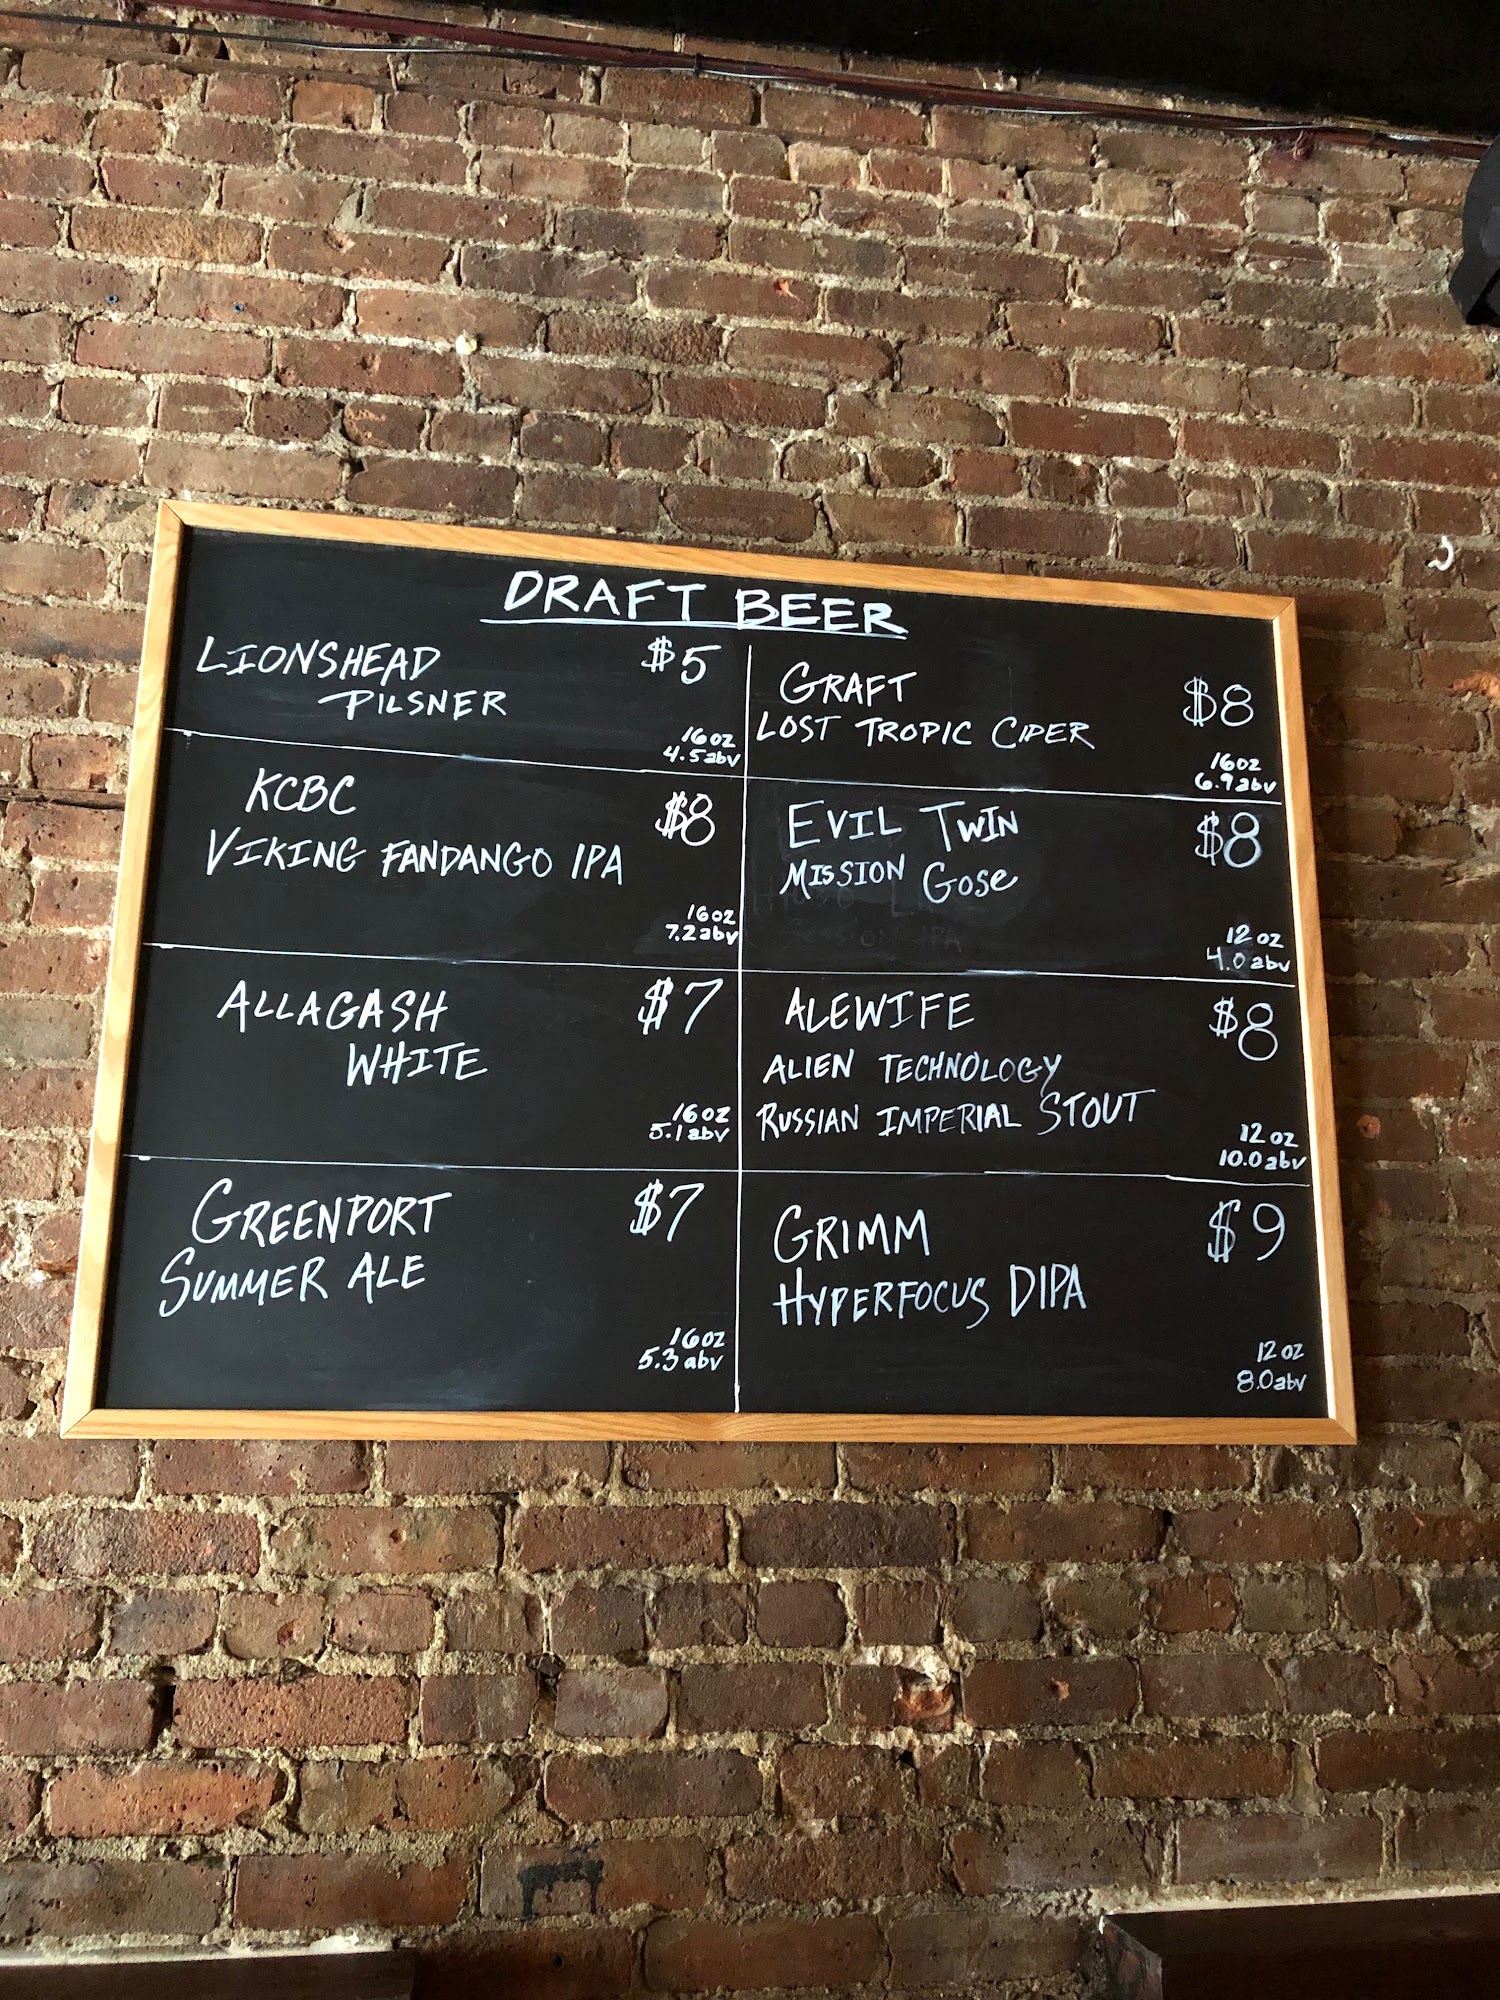 DRAFT BEER
LIONSHEAD $5
PILSNER
16oz
4.5abv
KCBC $8
VIKING FANDANGO IPA
16oz
7.2abv
ALLAGASH $7
WHITE
16oz
5.1abv
GREENPORT $7
SUMMER ALE
16oz
5.3abv
GRAFT $8
LOST TROPIC CIDER
16oz
6.9abv
EVIL TWIN $8
MISSION GOSE
12oz
4.0abv
ALEWIFE $8
ALIEN TECHNOLOGY
RUSSIAN IMPERIAL STOUT
12oz
10.0abv
GRIMM $9
HYPERFOCUS DIPA
12oz
8.0abv